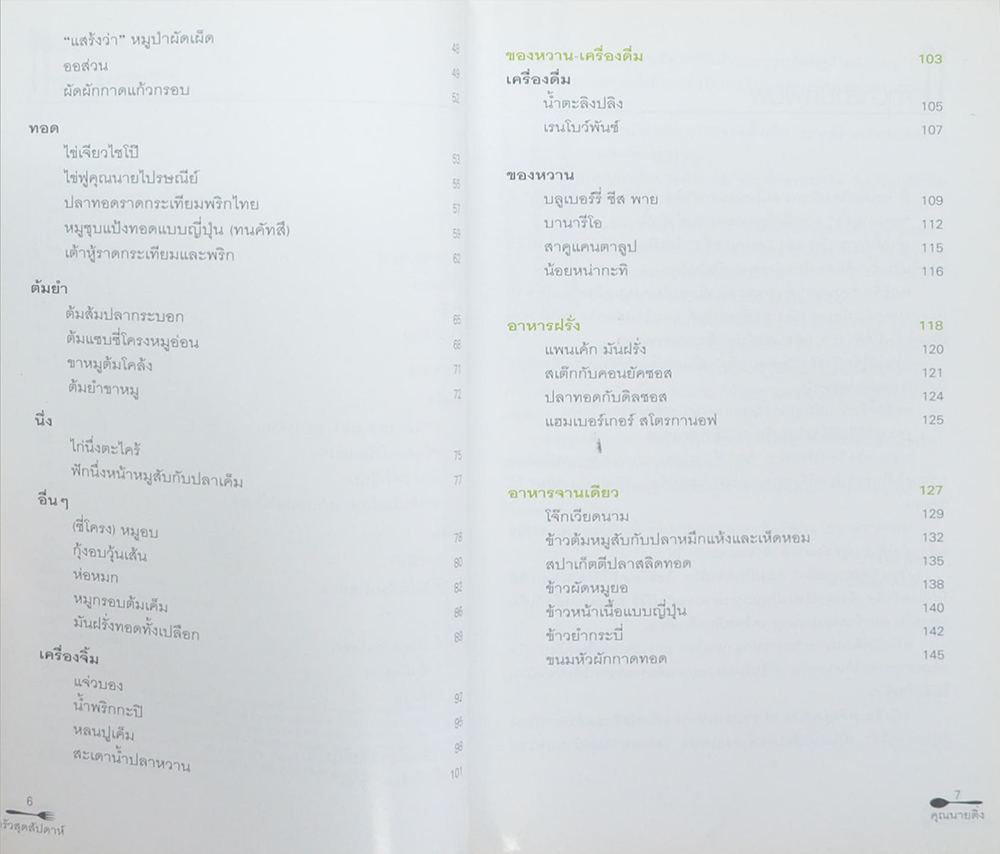 “แสร้งว่า” หมูป่าผัดเผ็ด 48
ออส่วน 49
ผัดผักกาดแก้วกรอบ 52
ทอด
ไข่เจียวไชโป๊ 53
ไข่ฟูคุณนายไปรษณีย์ 55
ปลาทอดราดกระเทียมพริกไทย 57
หมูชุบแป้งทอดแบบญี่ปุ่น (ทนคัทสึ) 59
เต้าหู้ราดกระเทียมและพริก 62
ต้มยำ
ต้มส้มปลากระบอก 65
ต้มแซบซี่โครงหมูอ่อน 68
ขาหมูต้มโคล้ง 71
ต้มยำขาหมู 72
นึ่ง
ไก่นึ่งตะไคร้ 75
ฟักนึ่งหน้าหมูสับกับปลาเค็ม 77
อื่นๆ
(ซี่โครง) หมูอบ 78
กุ้งอบวุ้นเส้น 80
ห่อหมก 82
หมูกรอบต้มเค็ม 86
มันฝรั่งทอดทั้งเปลือก 89
เครื่องจิ้ม
แจ่วบอง 92
น้ำพริกกะปิ 96
หลนปูเค็ม 98
สะเดาน้ำปลาหวาน 101
6
รัวสุดสัปดาห์
ของหวาน-เครื่องดื่ม 103
เครื่องดื่ม
น้ำตะลิงปลิง 105
เรนโบว์พันช์ 107
ของหวาน
บลูเบอร์รี่ ชีส พาย 109
บานารีโอ 112
สาคูแคนตาลูป 115
น้อยหน่ากะทิ 116
อาหารฝรั่ง 118
แพนเค้ก มันฝรั่ง 120
สเต๊กกับคอนยัคซอส 121
ปลาทอดกับดิลซอส 124
แฮมเบอร์เกอร์ สโตรกานอฟ 125
อาหารจานเดียว 127
โจ๊กเวียดนาม 129
ข้าวต้มหมูสับกับปลาหมึกแห้งและเห็ดหอม 132
สปาเก็ตตีปลาสลิดทอด 135
ข้าวผัดหมูยอ 138
ข้าวหน้าเนื้อแบบญี่ปุ่น 140
ข้าวยำกระบี่ 142
ขนมหัวผักกาดทอด 145
7
คุณนายติ่ง